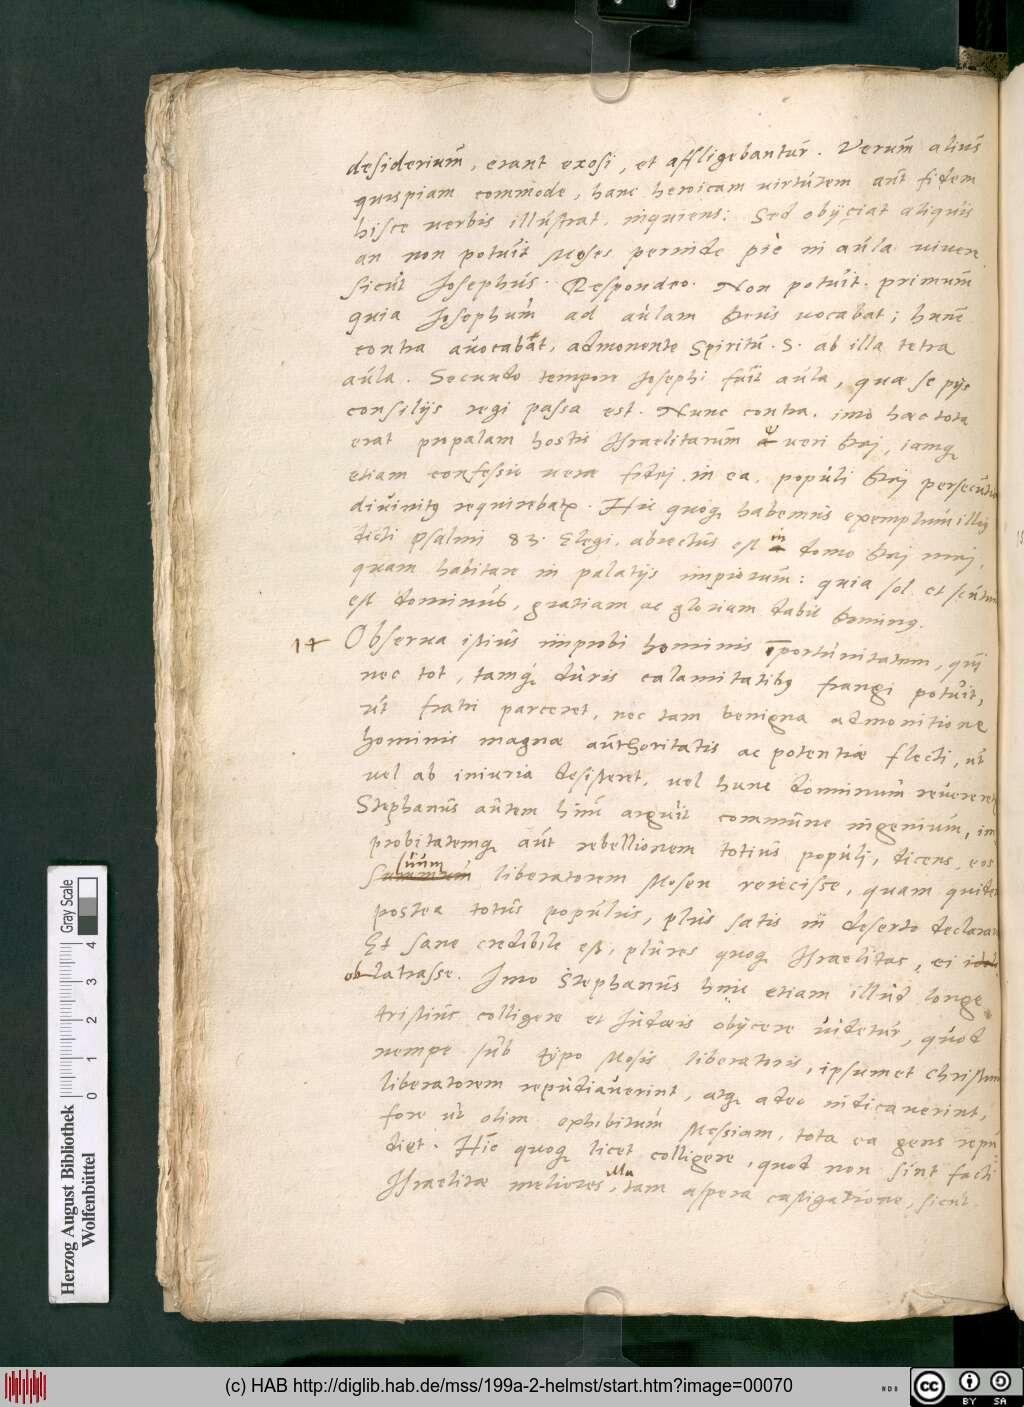 desiderium, erant exosi, et affligebantur. Verum alius
quispiam commode, hanc heroicam virtutem aut fidem
hisce verbis illustrat, inquiens: Sed obijciat aliquis
an non potuit Moses perinde piè in aula vivere
sicut Josephus. Respondeo. Non potuit. primum
quia Josephum ad aulam Deus vocabat; hunc
contra avocabat, admonente Spiritu. S. ab illa tetra
aula. Secundo tempore Josephi fuit aula, quae se pijs
consilijs regi passa est. Nunc contra, imò haec tota
erat propalam hostis Israelitarum & veri Dej, iamq;
etiam confessio verae fidej in ea, populi Dej persecutio
divinitus requirebatur. Hic quoq; habemus exemplum illius
dicti Psalmi 83. Elegi abiectus esse in domo Dej mej,
quam habitare in palatijs impiorum: quia sol et scutum
est dominus, gratiam ac gloriam dabit Dominus.
14 Observa istius improbi hominis importunitatem, qui
nec tot, tamq; duris calamitatibus frangi potuit,
ut fratri parceret, nec tam benigna admonitione
hominis magnae authoritatis ac potentiae flecti, ut
vel ab iniuria desisteret, vel hunc dominum revereret
Stephanus autem hinc arguit commune ingenium, im
probitatemq; aut rebellionem totius populi, dicens, eos
suum liberatorem Mosen reiecisse, quam quidem
postea totus populus, plus satis in deserto declarav
Et sane credibile est, plures quoq; Israelitas, ei
oblatrasse. Imo Stephanus hinc etiam illud longe
tristius colligere et Judaeis obijcere videtur, quod
nempe sub typo Mosis liberatoris, ipsummet Christum
liberatorem repudiaverint, atq; adeo indicaverint,
fore ut olim exhibitum Messiam, tota ea gens repu
diet. Hic quoq; licet colligere, quod non sint facti
Israelitae meliores, illa tam aspera castigatione, sicut
Gray Scale
0 1 2 3 4
Herzog August Bibliothek
Wolfenbüttel
(c) HAB http://diglib.hab.de/mss/199a-2-helmst/start.htm?image=00070
cc BY SA